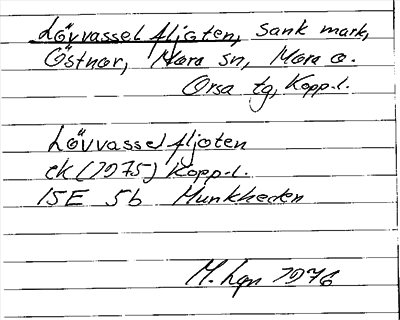 Lövvasselfljoten, sank mark,
Östnor, Mora sn, Mora o.
Orsa tg, Kopp.l.
Lövvasselfljoten
ek (1975) Kopp.l.
15E 5b Munkheden
M. Lgn 1976